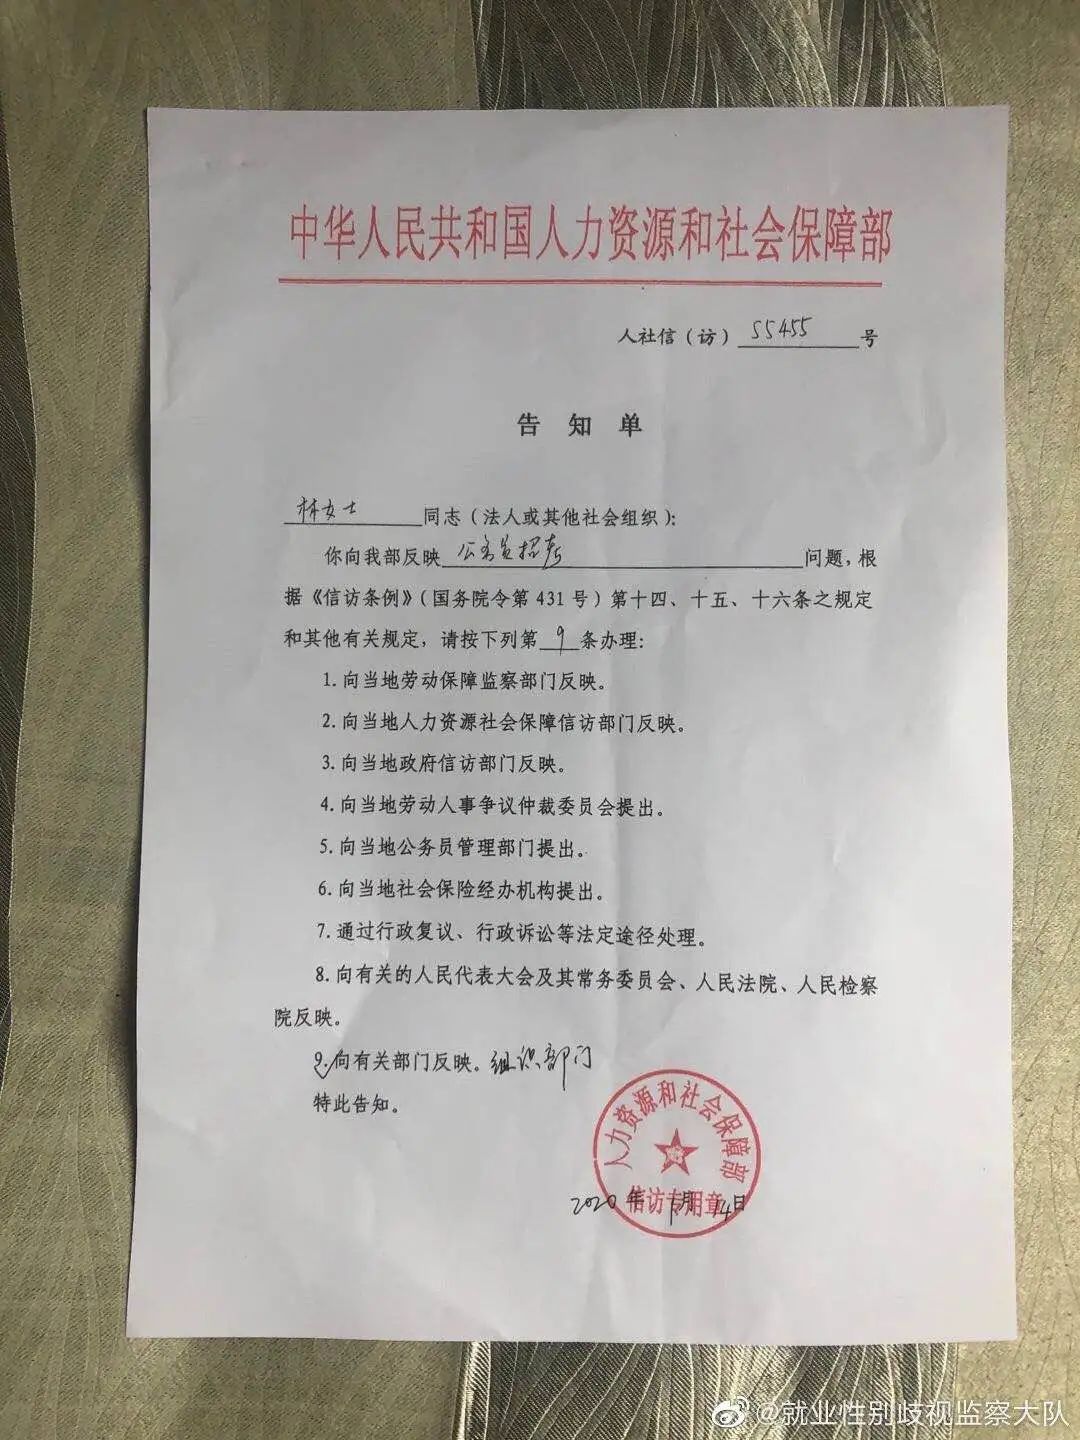 中华人民共和国人力资源和社会保障部
人社信（访）55455号
告知单
林女士同志（法人或其他社会组织）：
你向我部反映公务员招考问题，根
据《信访条例》（国务院令第431号）第十四、十五、十六条之规定
和其他有关规定，请按下列第9条办理：
1.向当地劳动保障监察部门反映。
2.向当地人力资源社会保障信访部门反映。
3.向当地政府信访部门反映。
4.向当地劳动人事争议仲裁委员会提出。
5.向当地公务员管理部门提出。
6.向当地社会保险经办机构提出。
7.通过行政复议、行政诉讼等法定途径处理。
8.向有关的人民代表大会及其常务委员会、人民法院、人民检察
院反映。
9.向有关部门反映。组织部门
特此告知。
人力资源和社会保障部
信访专用章
2020年1月14日
@就业性别歧视监察大队